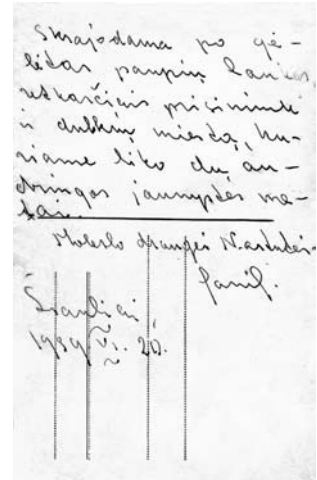 Skrajodama po gė-
lėtas paupių lankas
retkarčiais prisimink
ir dulkių miestą, ku-
riame liko du au-
dringos jaunystės me-
tai.
Mokslo draugei
Šiauliai,
1939 VI. 20.